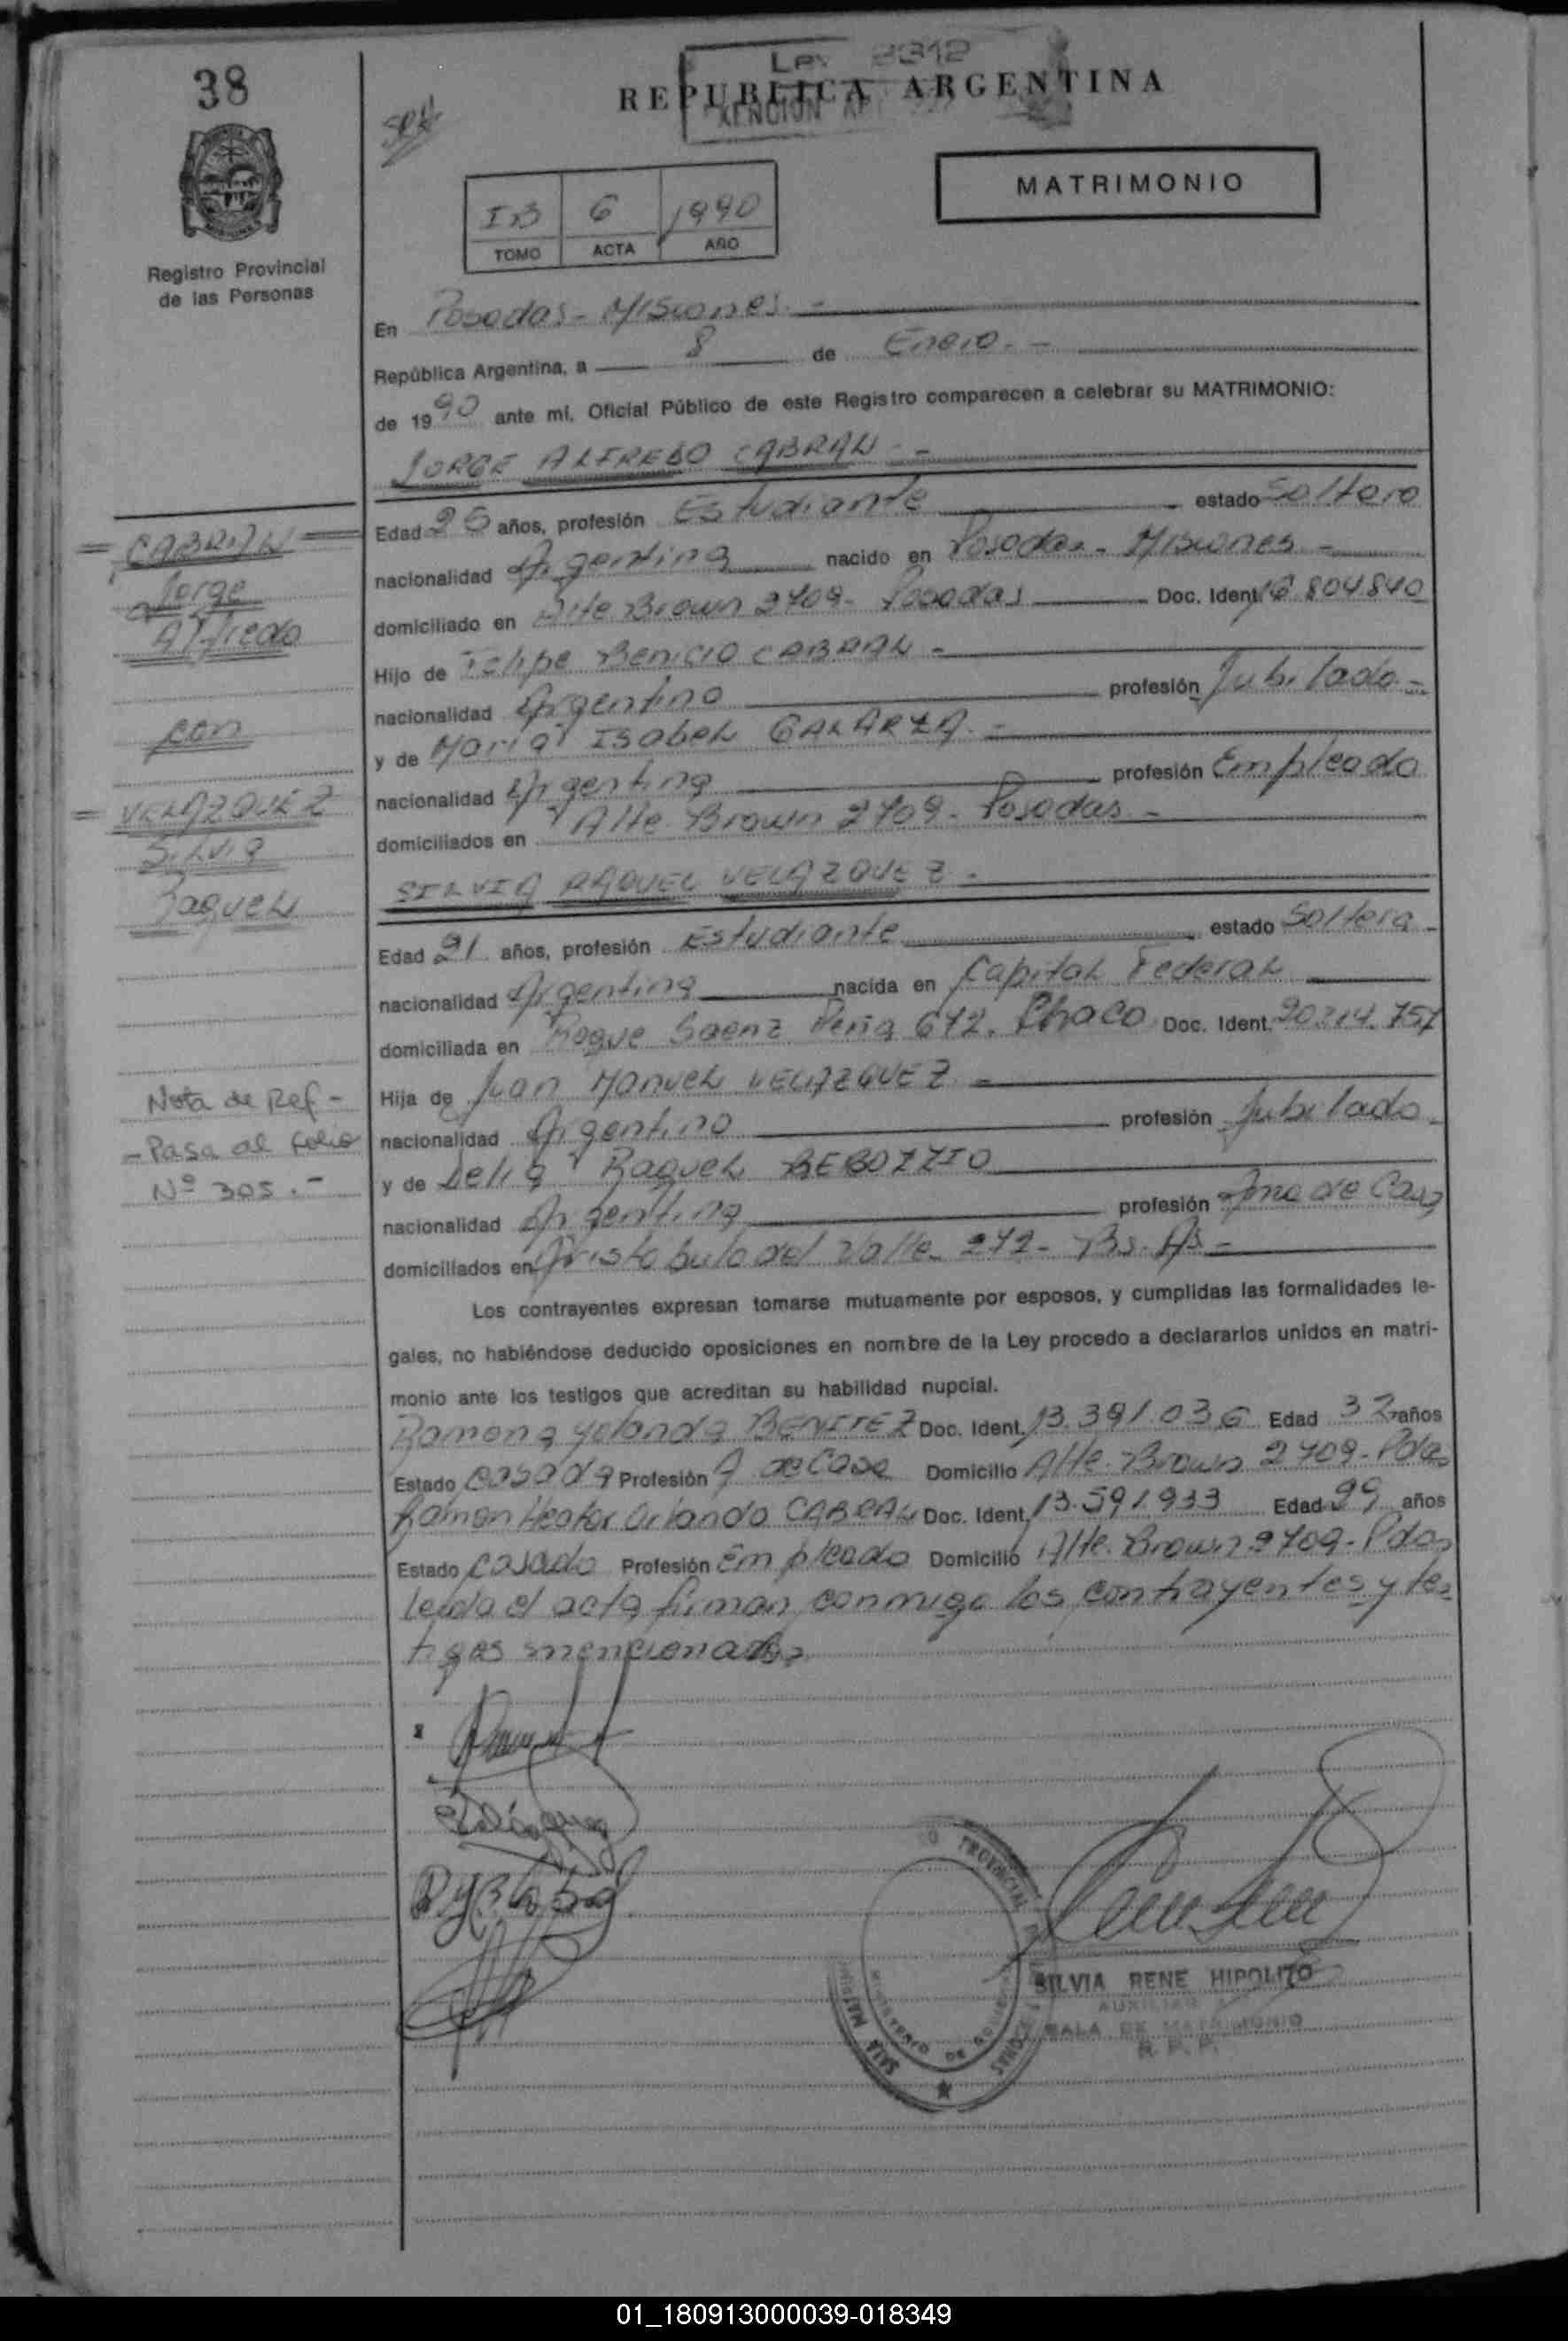 38
Ley
REPUBLICA ARGENTINA
MATRIMONIO
6 1990
TOMO ACTA AÑO
Registro Provincial
de las Personas
En Posadas - Misiones. -
República Argentina, a 8 de Enero. -
de 1990 ante mi, Oficial Público de este Registro comparecen a celebrar su MATRIMONIO:
JORGE ALFREDO CABRAL -
Edad 25 años, profesión Estudiante estado Soltero
nacionalidad Argentina nacido en Posadas - Misiones -
domiciliado en Alte Brown 2709 - Posadas Doc. Ident. 16.804.840
Hijo de Felipe Benicio CABRAL -
nacionalidad Argentino profesión Jubilado -
y de María Isabel GALARZA. -
nacionalidad Argentina profesión Empleada
domiciliados en Alte. Brown 2709 - Posadas -
SILVIA RAQUEL VELAZQUEZ -
Edad 21 años, profesión Estudiante estado Soltera -
nacionalidad Argentina nacida en Capital Federal
domiciliada en Roque Saenz Peña 672. Chaco Doc. Ident. 20.214.757
Hija de Juan Manuel VELAZQUEZ -
nacionalidad Argentino profesión Jubilado -
y de Delia Raquel
nacionalidad Argentina profesión Ama de Casa
domiciliados en Aristobulo del Valle 272 - Bs. As -
Los contrayentes expresan tomarse mutuamente por esposos, y cumplidas las formalidades le-
gales, no habiéndose deducido oposiciones en nombre de la Ley procedo a declararlos unidos en matri-
monio ante los testigos que acreditan su habilidad nupcial.
Ramona Yolanda BENITEZ Doc. Ident. 13.391.036 Edad 32 años
Estado casada Profesión A de Casa Domicilio Alte. Brown 2709 - Pdas
Ramon Hector Orlando CABRAL Doc. Ident. 13.591.933 Edad 29 años
Estado casado Profesión Empleado Domicilio Alte. Brown 2709 - Pdas
Leida el acta firman conmigo los contrayentes y tes-
tigos mencionados
CABRAL
Jorge
Alfredo
con
VELAZQUEZ
Silvia
Raquel
Nota de Ref -
- Pasa al folio
Nº 305. -
SILVIA RENE HIPOLITO
AUXILIAR
SALA DE MATRIMONIO
R. P. P.
01_180913000039-018349